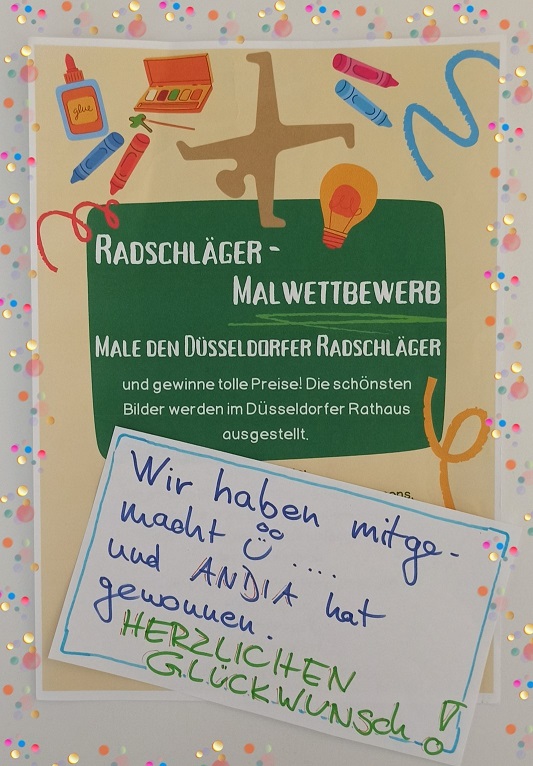 glue
RADSCHLÄGER -
MALWETTBEWERB
MALE DEN DÜSSELDORFER RADSCHLÄGER
und gewinne tolle Preise! Die schönsten
Bilder werden im Düsseldorfer Rathaus
ausgestellt.
Wir haben mitge-
macht ....
und ANDIA hat
gewonnen.
HERZLICHEN
GLÜCKWUNSCH!